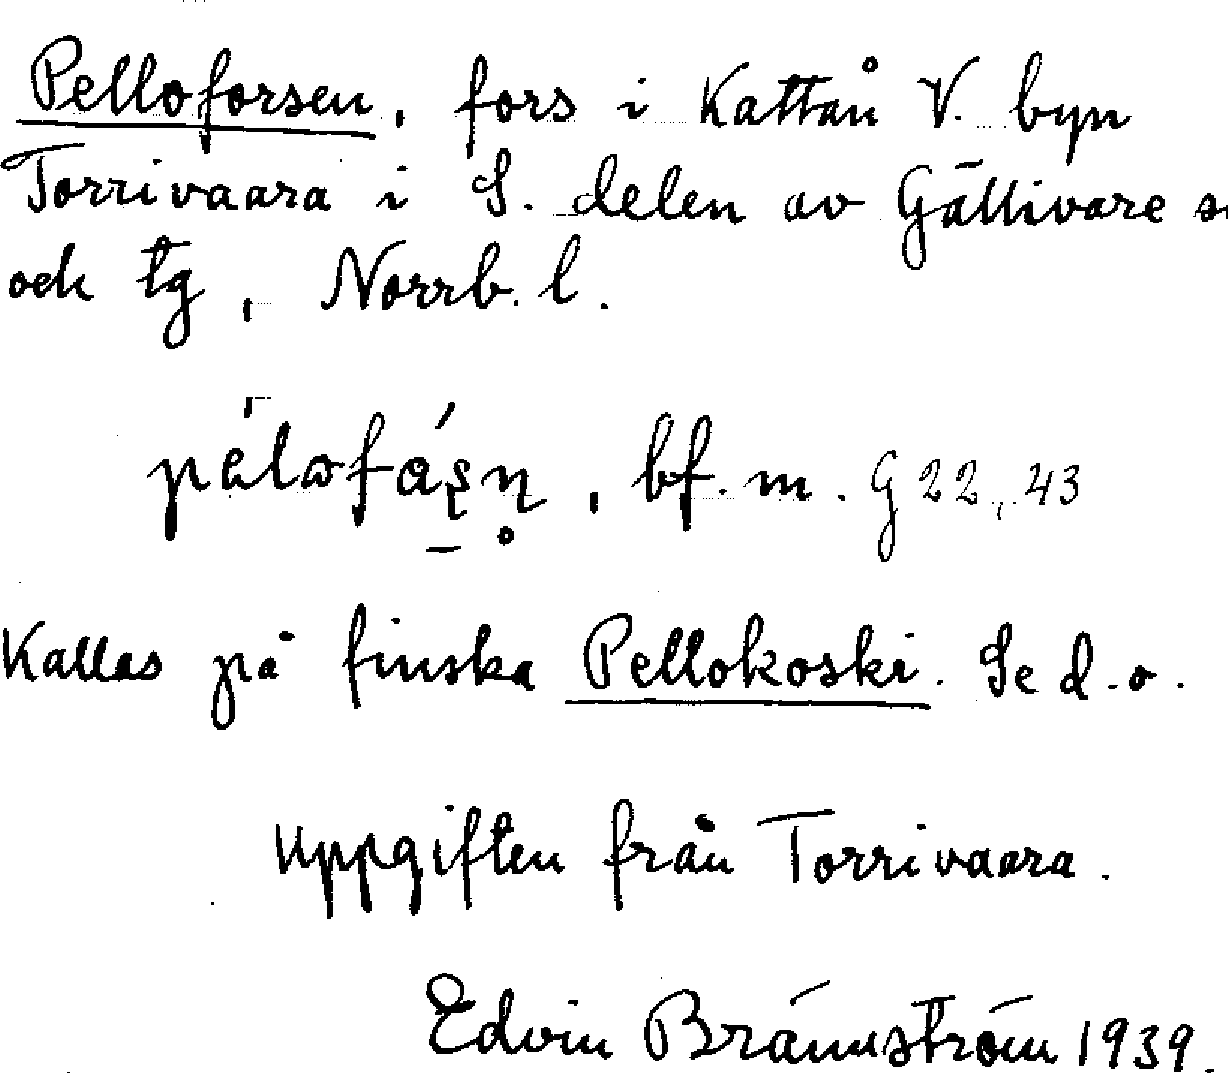 Pelloforsen, fors i Kattån V. byn
Torrivaara i S. delen av Gällivare s
och tg, Norrb. l.
bf. m. G 22, 43
Kallas på finska Pellokoski. Se d. o.
Uppgiften från Torrivaara.
Edvin Brännström 1939.